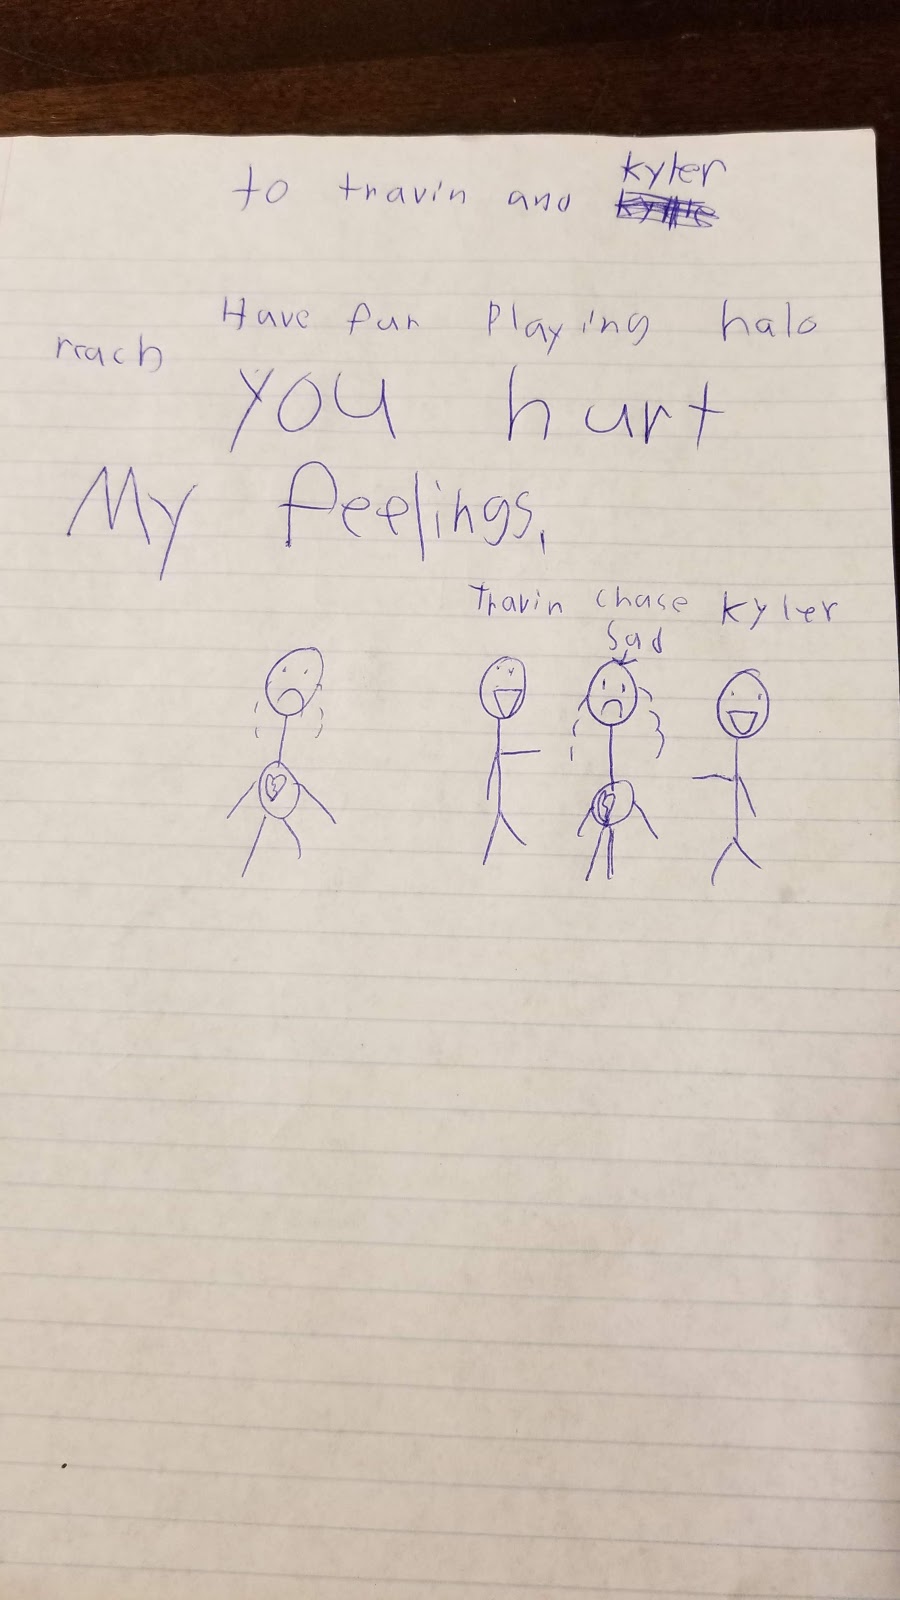 to travin and kyler
Have fun Playing halo
reach
you hurt
My feelings,
Travin chase kyler
sad